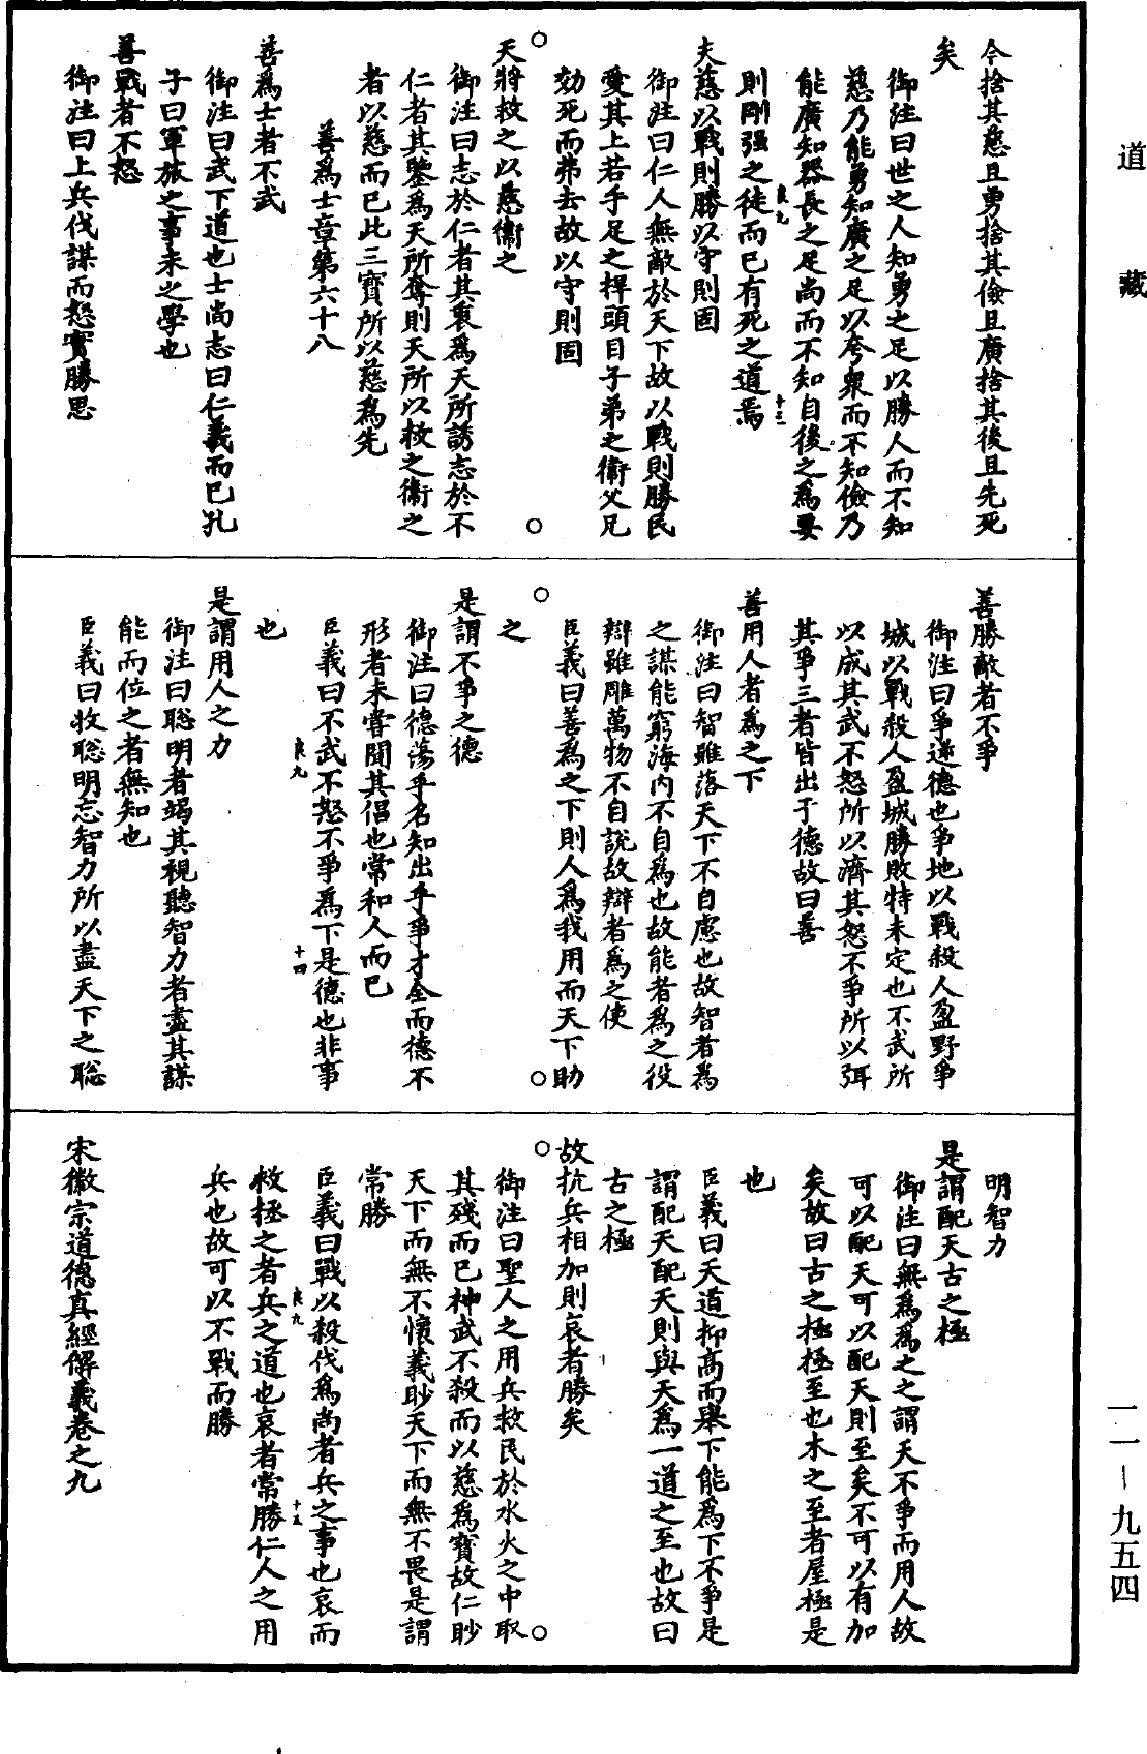 道藏
一一－九五四
今捨其慈且勇捨其儉且廣捨其後且先死
矣
御注曰世之人知勇之足以勝人而不知
慈乃能勇知廣之足以夸衆而不知儉乃
能廣知器長之足尚而不知自後之爲要
良九
十三
則剛强之徒而已有死之道焉
夫慈以戰則勝以守則固
御注曰仁人無敵於天下故以戰則勝民
愛其上若手足之捍頭目子弟之衛父兄
効死而弗去故以守則固
天將救之以慈衛之
御注曰志於仁者其衷爲天所誘志於不
仁者其鑒爲天所奪則天所以救之衛之
者以慈而已此三寶所以慈爲先
善爲士章第六十八
善爲士者不武
御注曰武下道也士尚志曰仁義而已孔
子曰軍旅之事未之學也
善戰者不怒
御注曰上兵伐謀而怒實勝思
善勝敵者不爭
御注曰爭逆德也爭地以戰殺人盈野爭
城以戰殺人盈城勝敗特未定也不武所
以成其武不怒所以濟其怒不爭所以弭
其爭三者皆出于德故曰善
善用人者爲之下
御注曰智雖落天下不自慮也故智者爲
之謀能窮海内不自爲也故能者爲之役
辯雖雕萬物不自說故辯者爲之使
臣義曰善爲之下則人爲我用而天下助
之
是謂不爭之德
御注曰德蕩乎名知出乎爭才全而德不
形者未嘗聞其倡也常和人而已
臣義曰不武不怒不爭爲下是德也非事
良九
十四
也
是謂用人之力
御注曰聡明者竭其視聽智力者盡其謀
能而位之者無知也
臣義曰收聡明忘智力所以盡天下之聡
明智力
是謂配天古之極
御注曰無爲爲之之謂天不爭而用人故
可以配天可以配天則至矣不可以有加
矣故曰古之極極至也木之至者屋極是
也
臣義曰天道抑高而舉下能爲下不爭是
謂配天配天則與天爲一道之至也故曰
古之極
故抗兵相加則哀者勝矣
御注曰聖人之用兵救民於水火之中取
其殘而已神武不殺而以慈爲寶故仁眇
天下而無不懷義眇天下而無不畏是謂
常勝
臣義曰戰以殺伐爲尚者兵之事也哀而
良九
十五
救拯之者兵之道也哀者常勝仁人之用
兵也故可以不戰而勝
宋徽宗道德真經解義卷之九